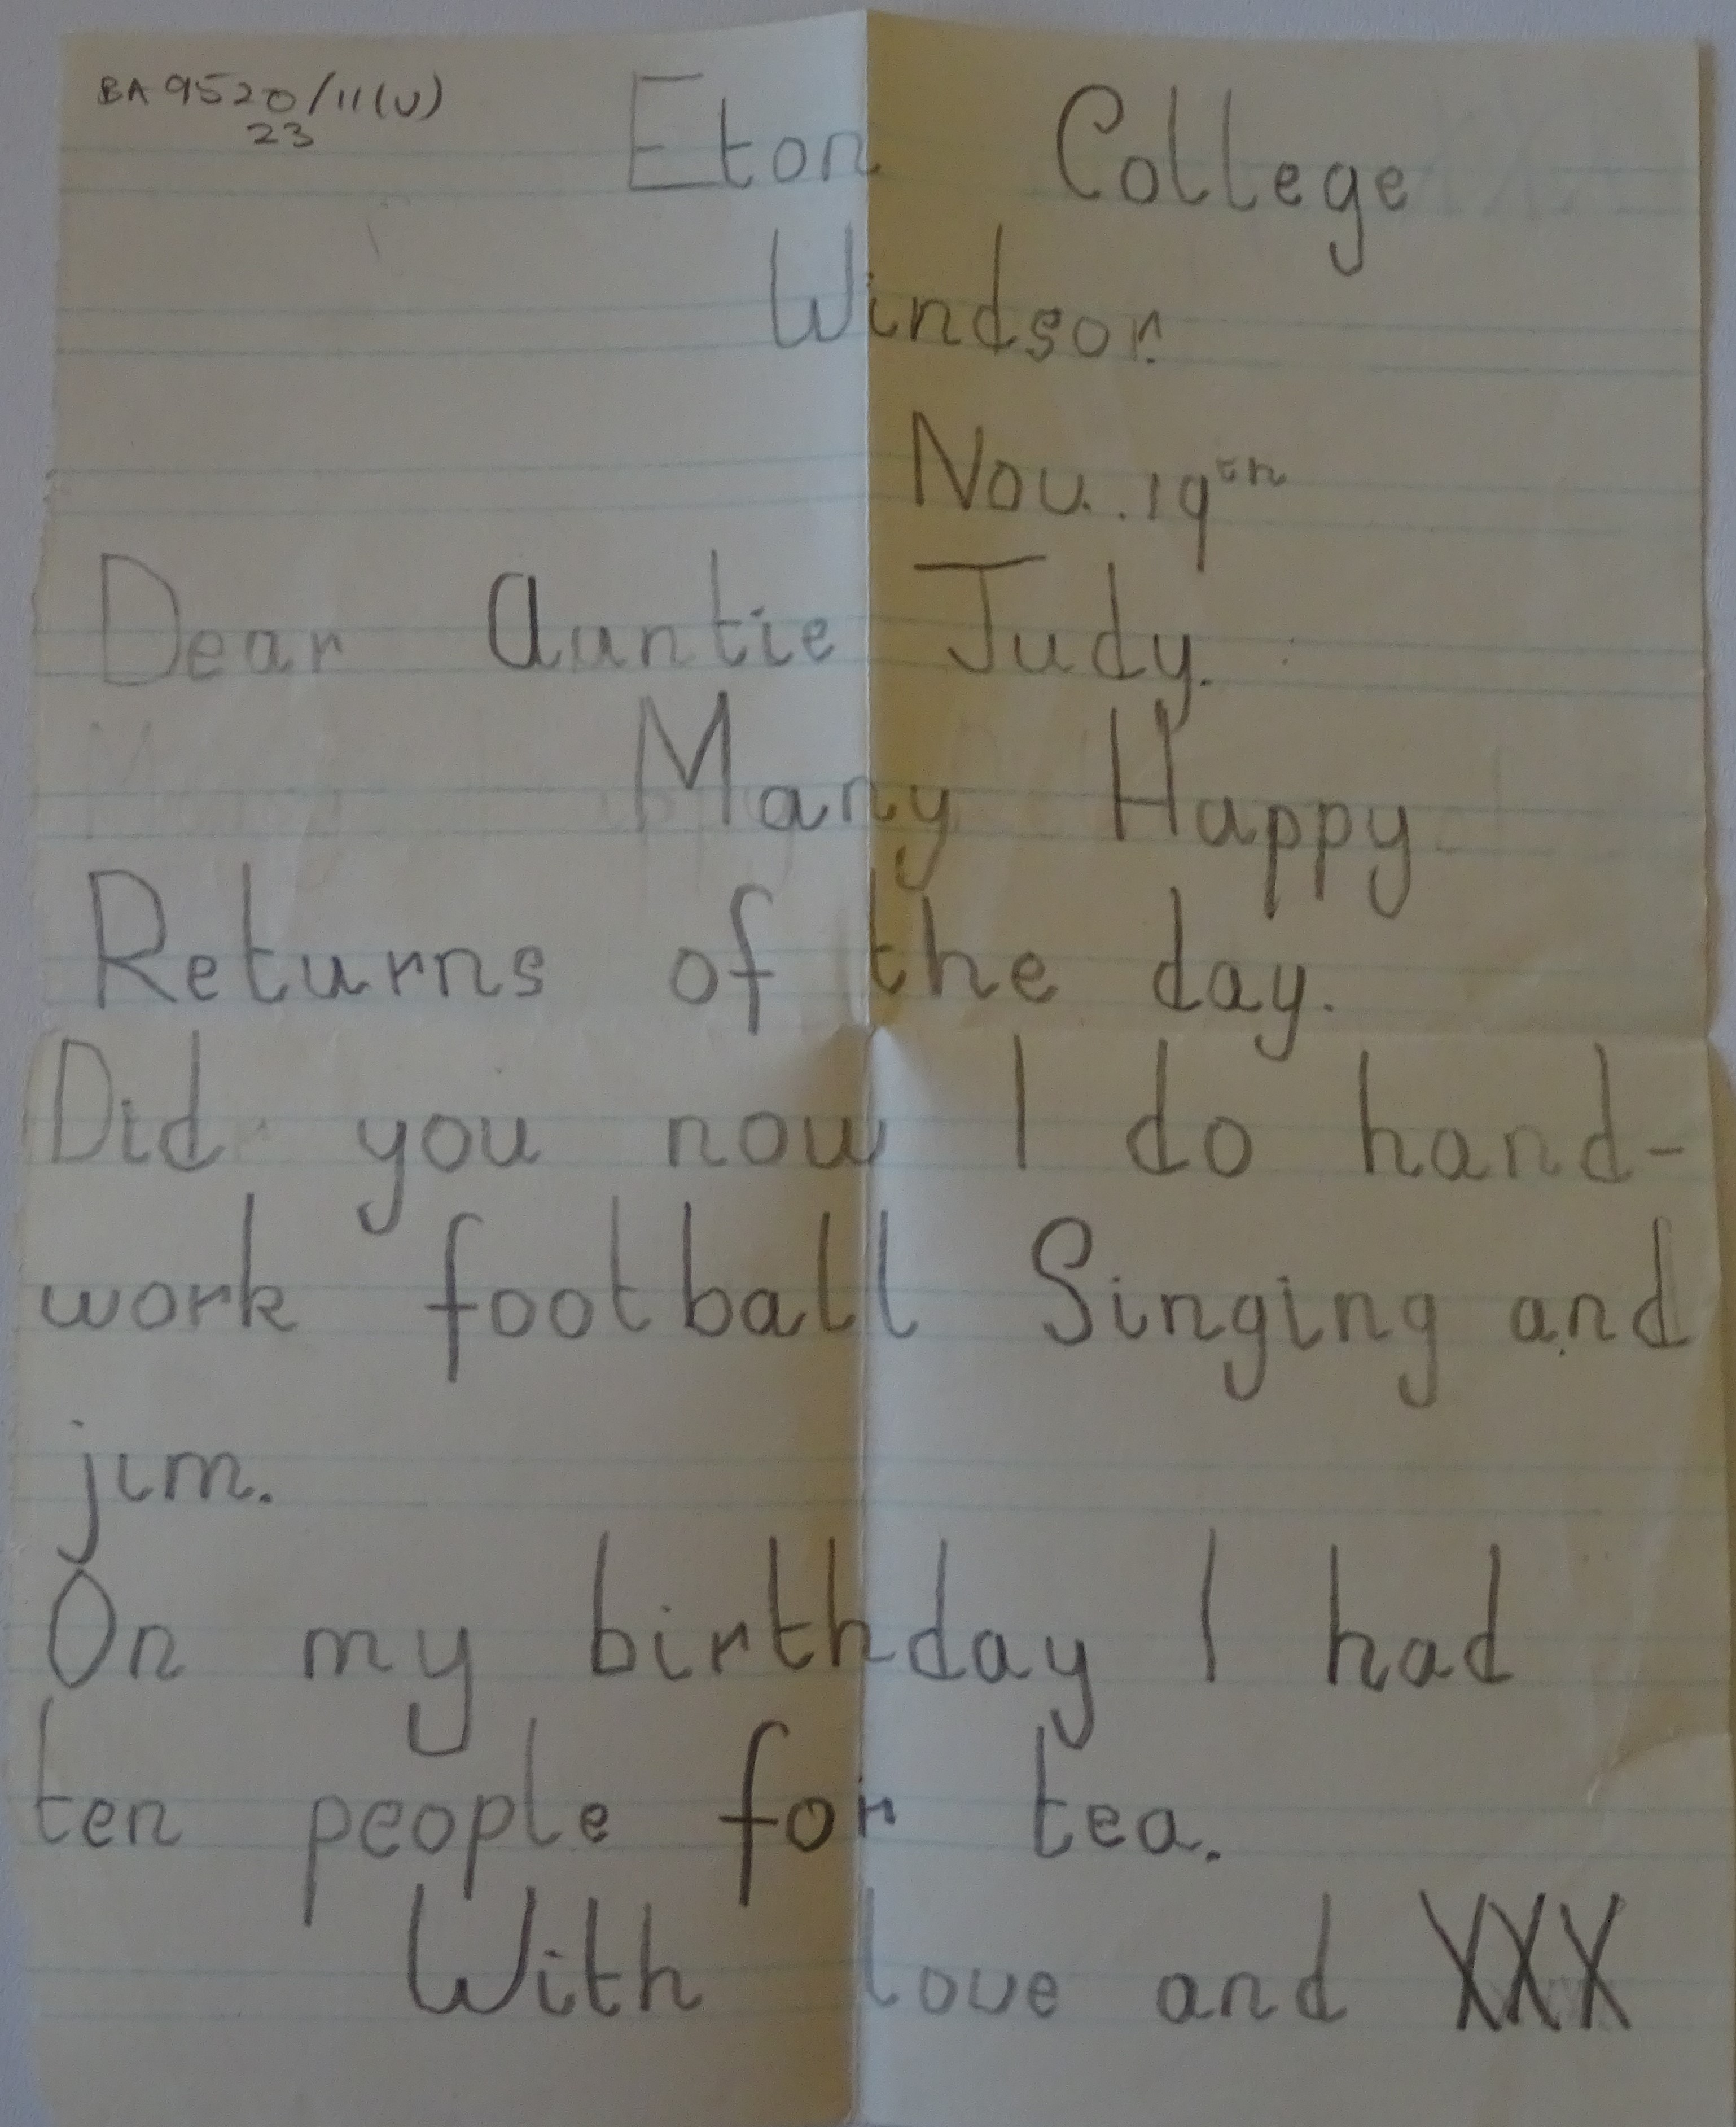 BA 9520/11(v)
23
Eton College
Windsor.
Nov. 19th
Dear Auntie Judy.
Many Happy
Returns of the day.
Did you now I do hand-
work football Singing and
jim.
On my birthday I had
ten people for tea.
With love and XXX